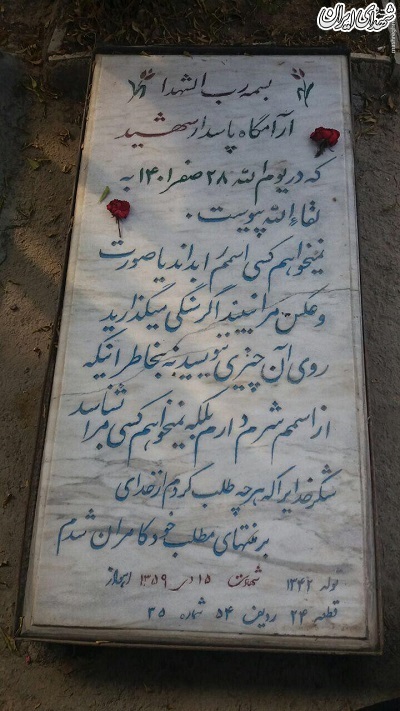 شهدای ایران
بسمه رب الشهدا
آرامگاه پاسدار شهید
که در یوم الله ۲۸ صفر ۱۴۰۱ به
لقاءالله پیوست.
نمیخواهم کسی اسمم را بداند یا صورت
و عکس مرا ببیند اگر سنگی میگذارید
روی آن چیزی ننویسید نه بخاطر اینکه
از اسمم شرم دارم بلکه نمیخواهم کسی مرا بشناسد
شکر خدا را که هر چه طلب کردم از خدای
بر منتهای مطلب خود کامران شدم
تولد ۱۳۴۲ شهادت ۱۵ دی ۱۳۵۹ اهواز
قطعه ۲۴ ردیف ۵۴ شماره ۲۵